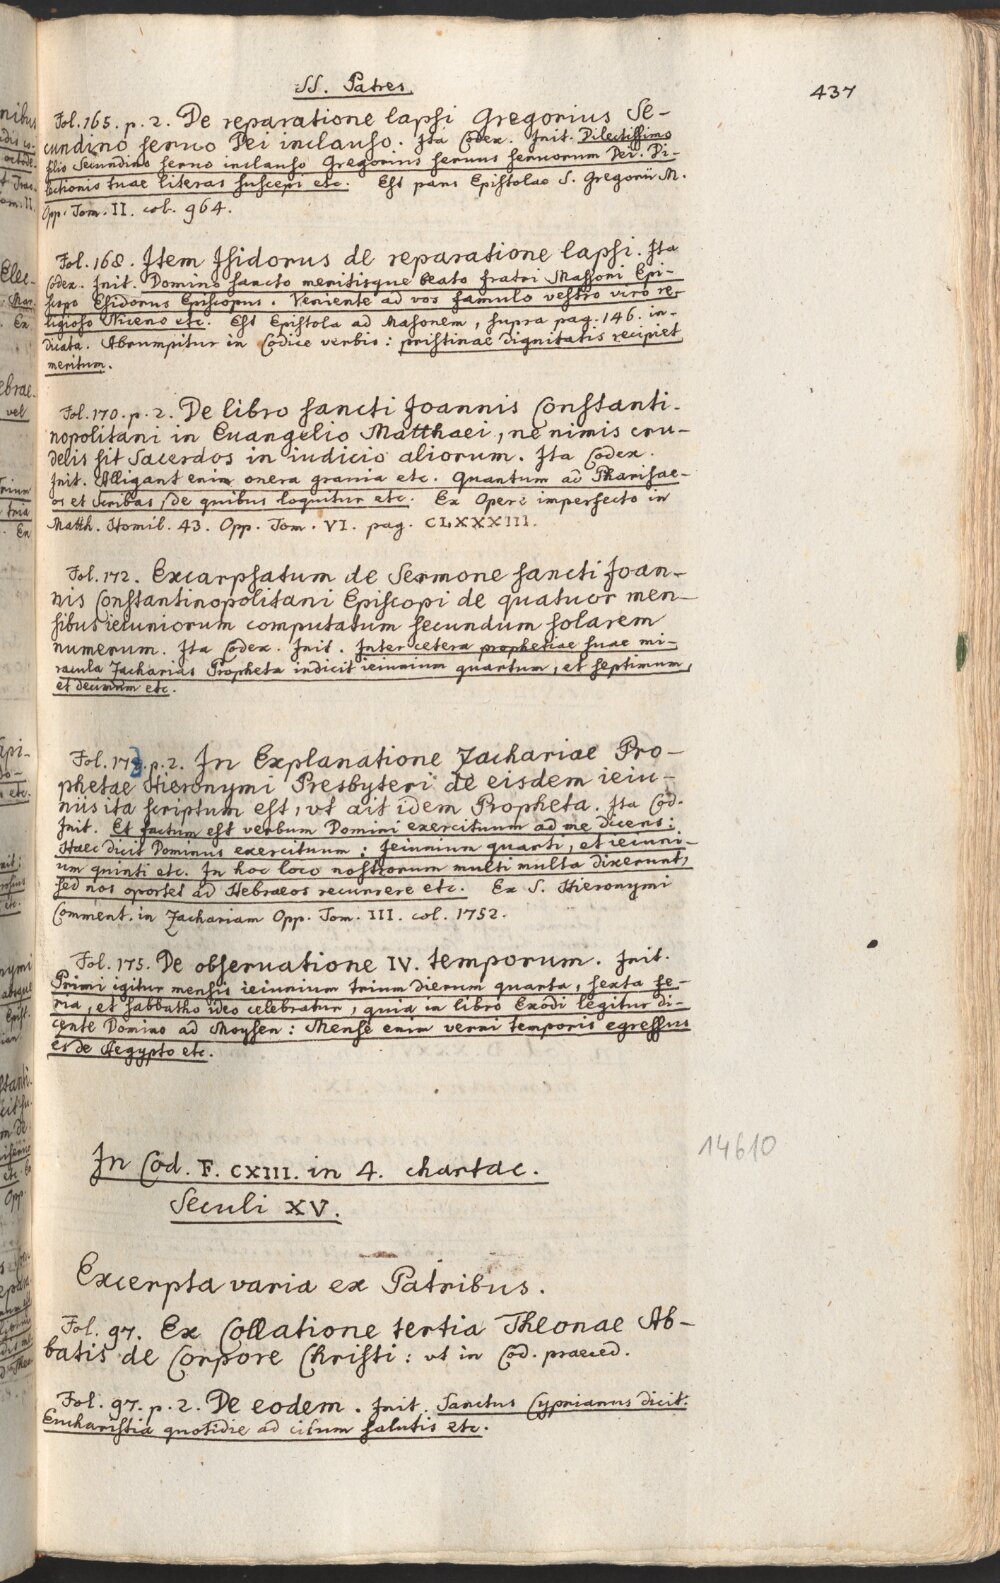 SS. Patres.
437
Fol. 165. p. 2. De reparatione lapsi Gregorius Se-
cundino seruo Dei inclauso. Ita Codex. Init. Dilectissimo
filio Secundino seruo inclauso Gregorius seruus seruorum Dei. Di-
lectionis tuae literas suscepi etc. Est pars Epistolae S. Gregorii M.
Opp. Tom. II. col. 964.
Fol. 168. Item Isidorus de reparatione lapsi. Ita
Codex. Init. Domino sancto meritisque beato fratri Massoni Epi-
scopo Esidorus Episcopus. Veniente ad vos famulo vestro viro re-
ligioso Niceno etc. Est Epistola ad Masonem, supra pag. 146. in-
dicata. Abrumpitur in Codice verbis: pristinae dignitatis recipiet
meritum.
Fol. 170. p. 2. De libro sancti Joannis Constanti-
nopolitani in Euangelio Matthaei, ne nimis cru-
delis sit Sacerdos in iudicio aliorum. Ita Codex.
Init. Alligant enim onera grauia etc. Quantum ad Pharisae-
os et Scribas, de quibus loquitur etc. Ex Opere imperfecto in
Matth. Homil. 43. Opp. Tom. VI. pag. CLXXXIII.
Fol. 172. Excarpsatum de Sermone sancti Joan-
nis Constantinopolitani Episcopi de quatuor men-
sibus ieiuniorum computatum secundum solarem
numerum. Ita Codex. Init. Inter cetera prophetiae suae mi-
racula Zacharias Propheta indicit ieiunium quartum, et septimum,
et decimum etc.
Fol. 173. p. 2. In Explanatione Zachariae Pro-
phetae Hieronymi Presbyteri de eisdem ieiu-
niis ita scriptum est, vt ait idem Propheta. Ita Cod.
Init. Et factum est verbum Domini exercituum ad me dicens:
Haec dicit Dominus exercituum: Jeiunium quarti, et ieiuni-
um quinti etc. In hoc loco nostrorum multi multa dixerunt,
sed nos oportet ad Hebraeos recurrere etc. Ex S. Hieronymi
Comment. in Zachariam Opp. Tom. III. col. 1752.
Fol. 175. De obseruatione IV. temporum. Init.
Primi igitur mensis ieiunium trium dierum quarta, sexta fe-
ria, et sabbatho ideo celebratur, quia in libro Exodi legitur di-
cente Domino ad Moysen: Mense enim verni temporis egressus
es de Aegypto etc.
14610
In Cod. F. CXIII. in 4. chartac.
Seculi XV.
Excerpta varia ex Patribus.
Fol. 97. Ex Collatione tertia Theonae Ab-
batis de Corpore Christi: vt in Cod. praeced.
Fol. 97. p. 2. De eodem. Init. Sanctus Cyprianus dicit:
Eucharistia quotidie ad cibum salutis etc.